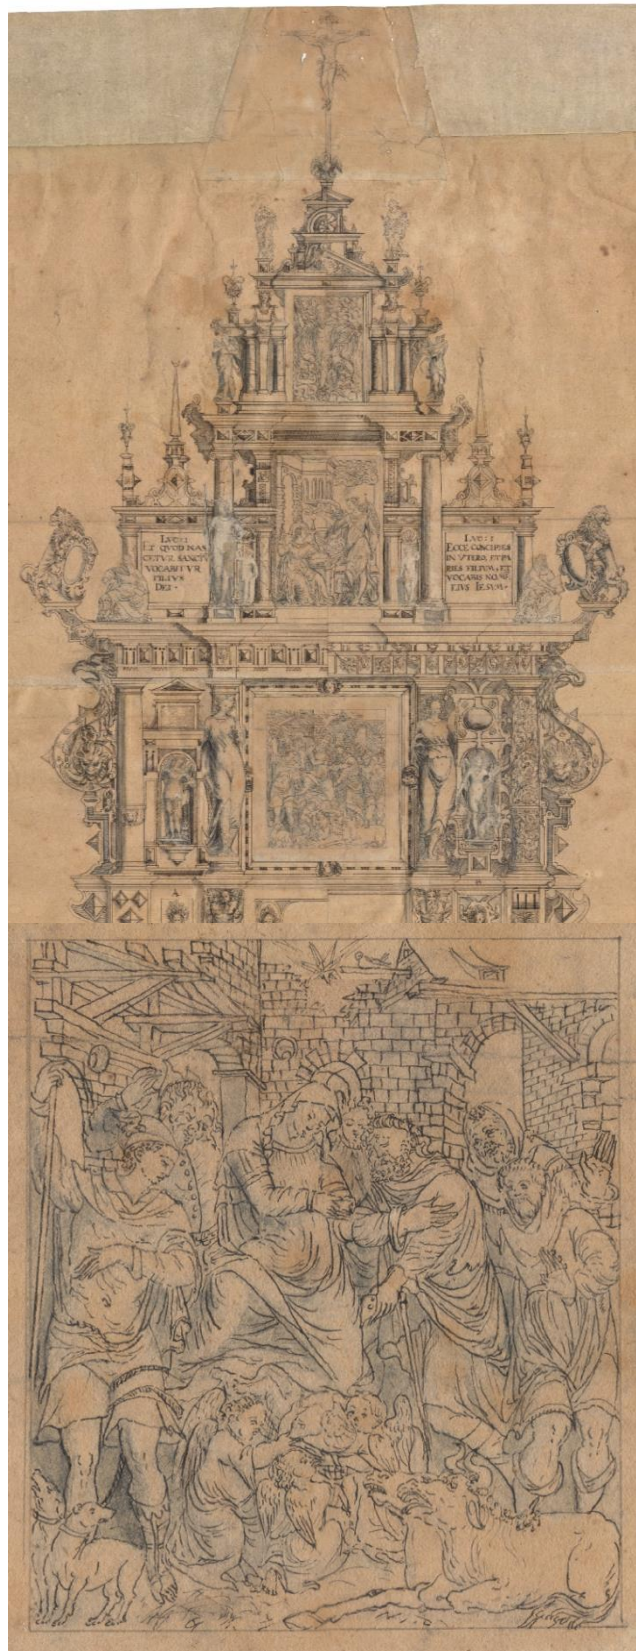 LVC: I
ET QVOD NAS
CETVR SANCTV
VOCABITVR
FILIVS
DEI ·
LVC: I
ECCE CONCIPIES
IN VTERO, ET PA
RIES FILIVM, ET
VOCABIS NOM̄
EIVS IESVM ·